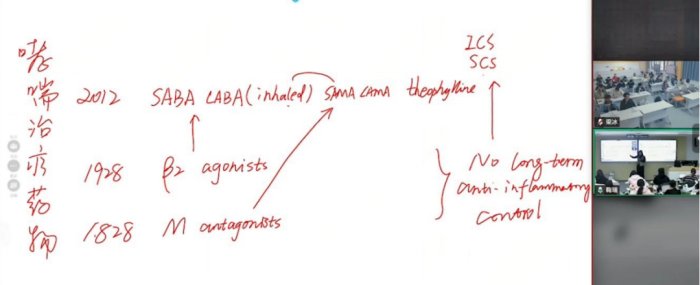 哮喘治疗药物
ICS
SCS
2012 SABA LABA (inhaled) SAMA LAMA theophylline
1928 β2 agonists
1828 M antagonists
No long-term
anti-inflammatory
control